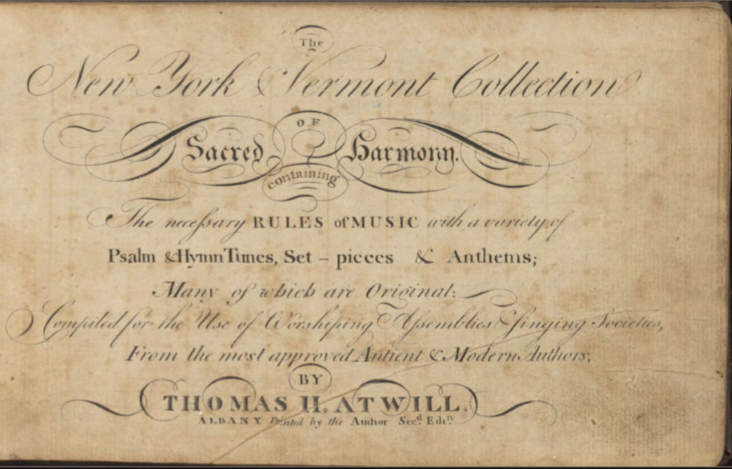 The
New York & Vermont Collection
OF
Sacred Harmony.
containing
The neceſsary RULES of MUSIC with a variety of
Psalm & Hymn Tunes, Set - pieces & Anthems;
Many of which are Original:
Compiled for the Use of Worshiping Aſsemblies & ſinging Societies,
From the most approved Antient & Modern Authors;
BY
THOMAS H. ATWILL.
ALBANY Printed by the Author Secd. Editn.